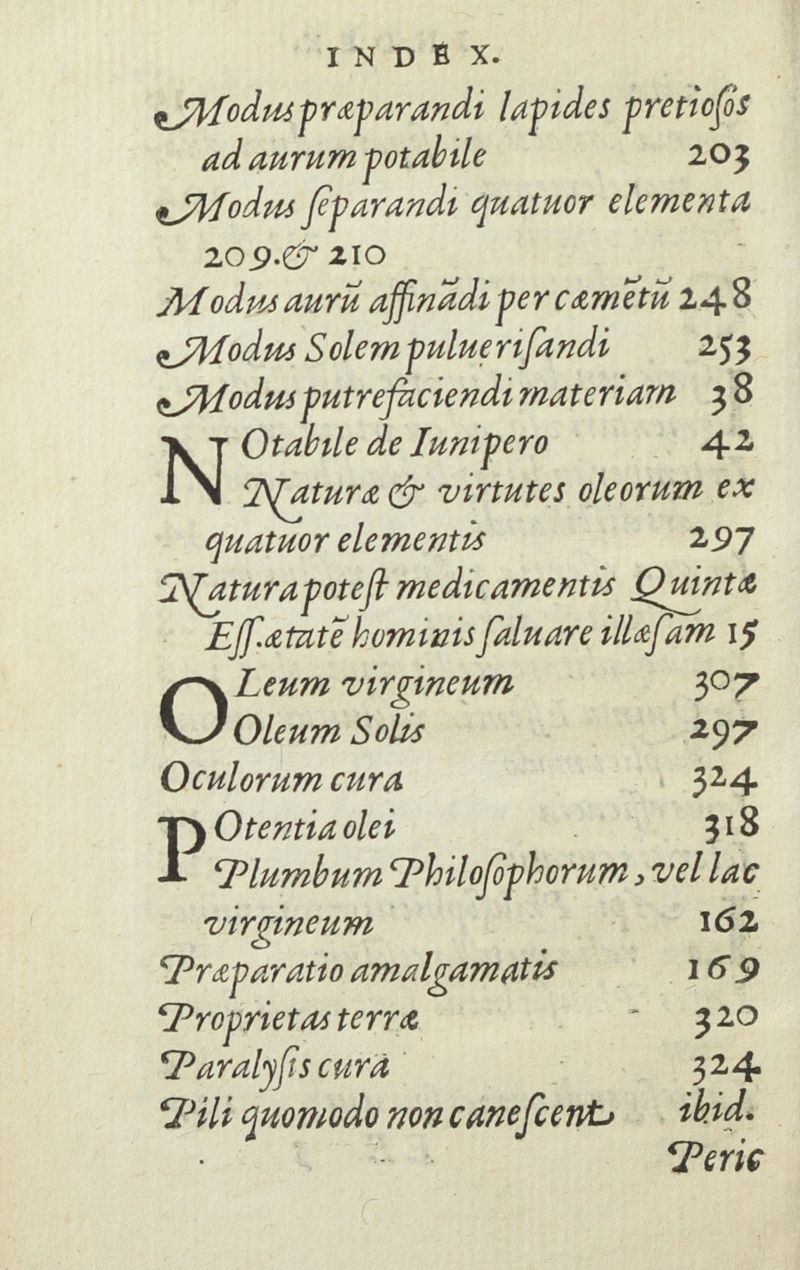 INDEX.
Modus præparandi lapides pretioſos
ad aurum potabile 203
Modus ſeparandi quatuor elementa
209.& 210
Modus aurū affinādi per cæmētū 248
Modus Solem pulueriſandi 253
Modus putrefaciendi materiam 38
NOtabile de Iunipero 42
Naturæ & virtutes oleorum ex
quatuor elementis 297
Natura poteſt medicamentis Quintæ
Eſſ.ætatē hominis ſaluare illæſam 15
OLeum virgineum 307
Oleum Solis 297
Oculorum cura 324
POtentia olei 318
Plumbum Philoſophorum, vel lac
virgineum 162
Præparatio amalgamatis 169
Proprietas terræ 320
Paralyſis cura 324
Pili quomodo non caneſcent ibid.
Peric